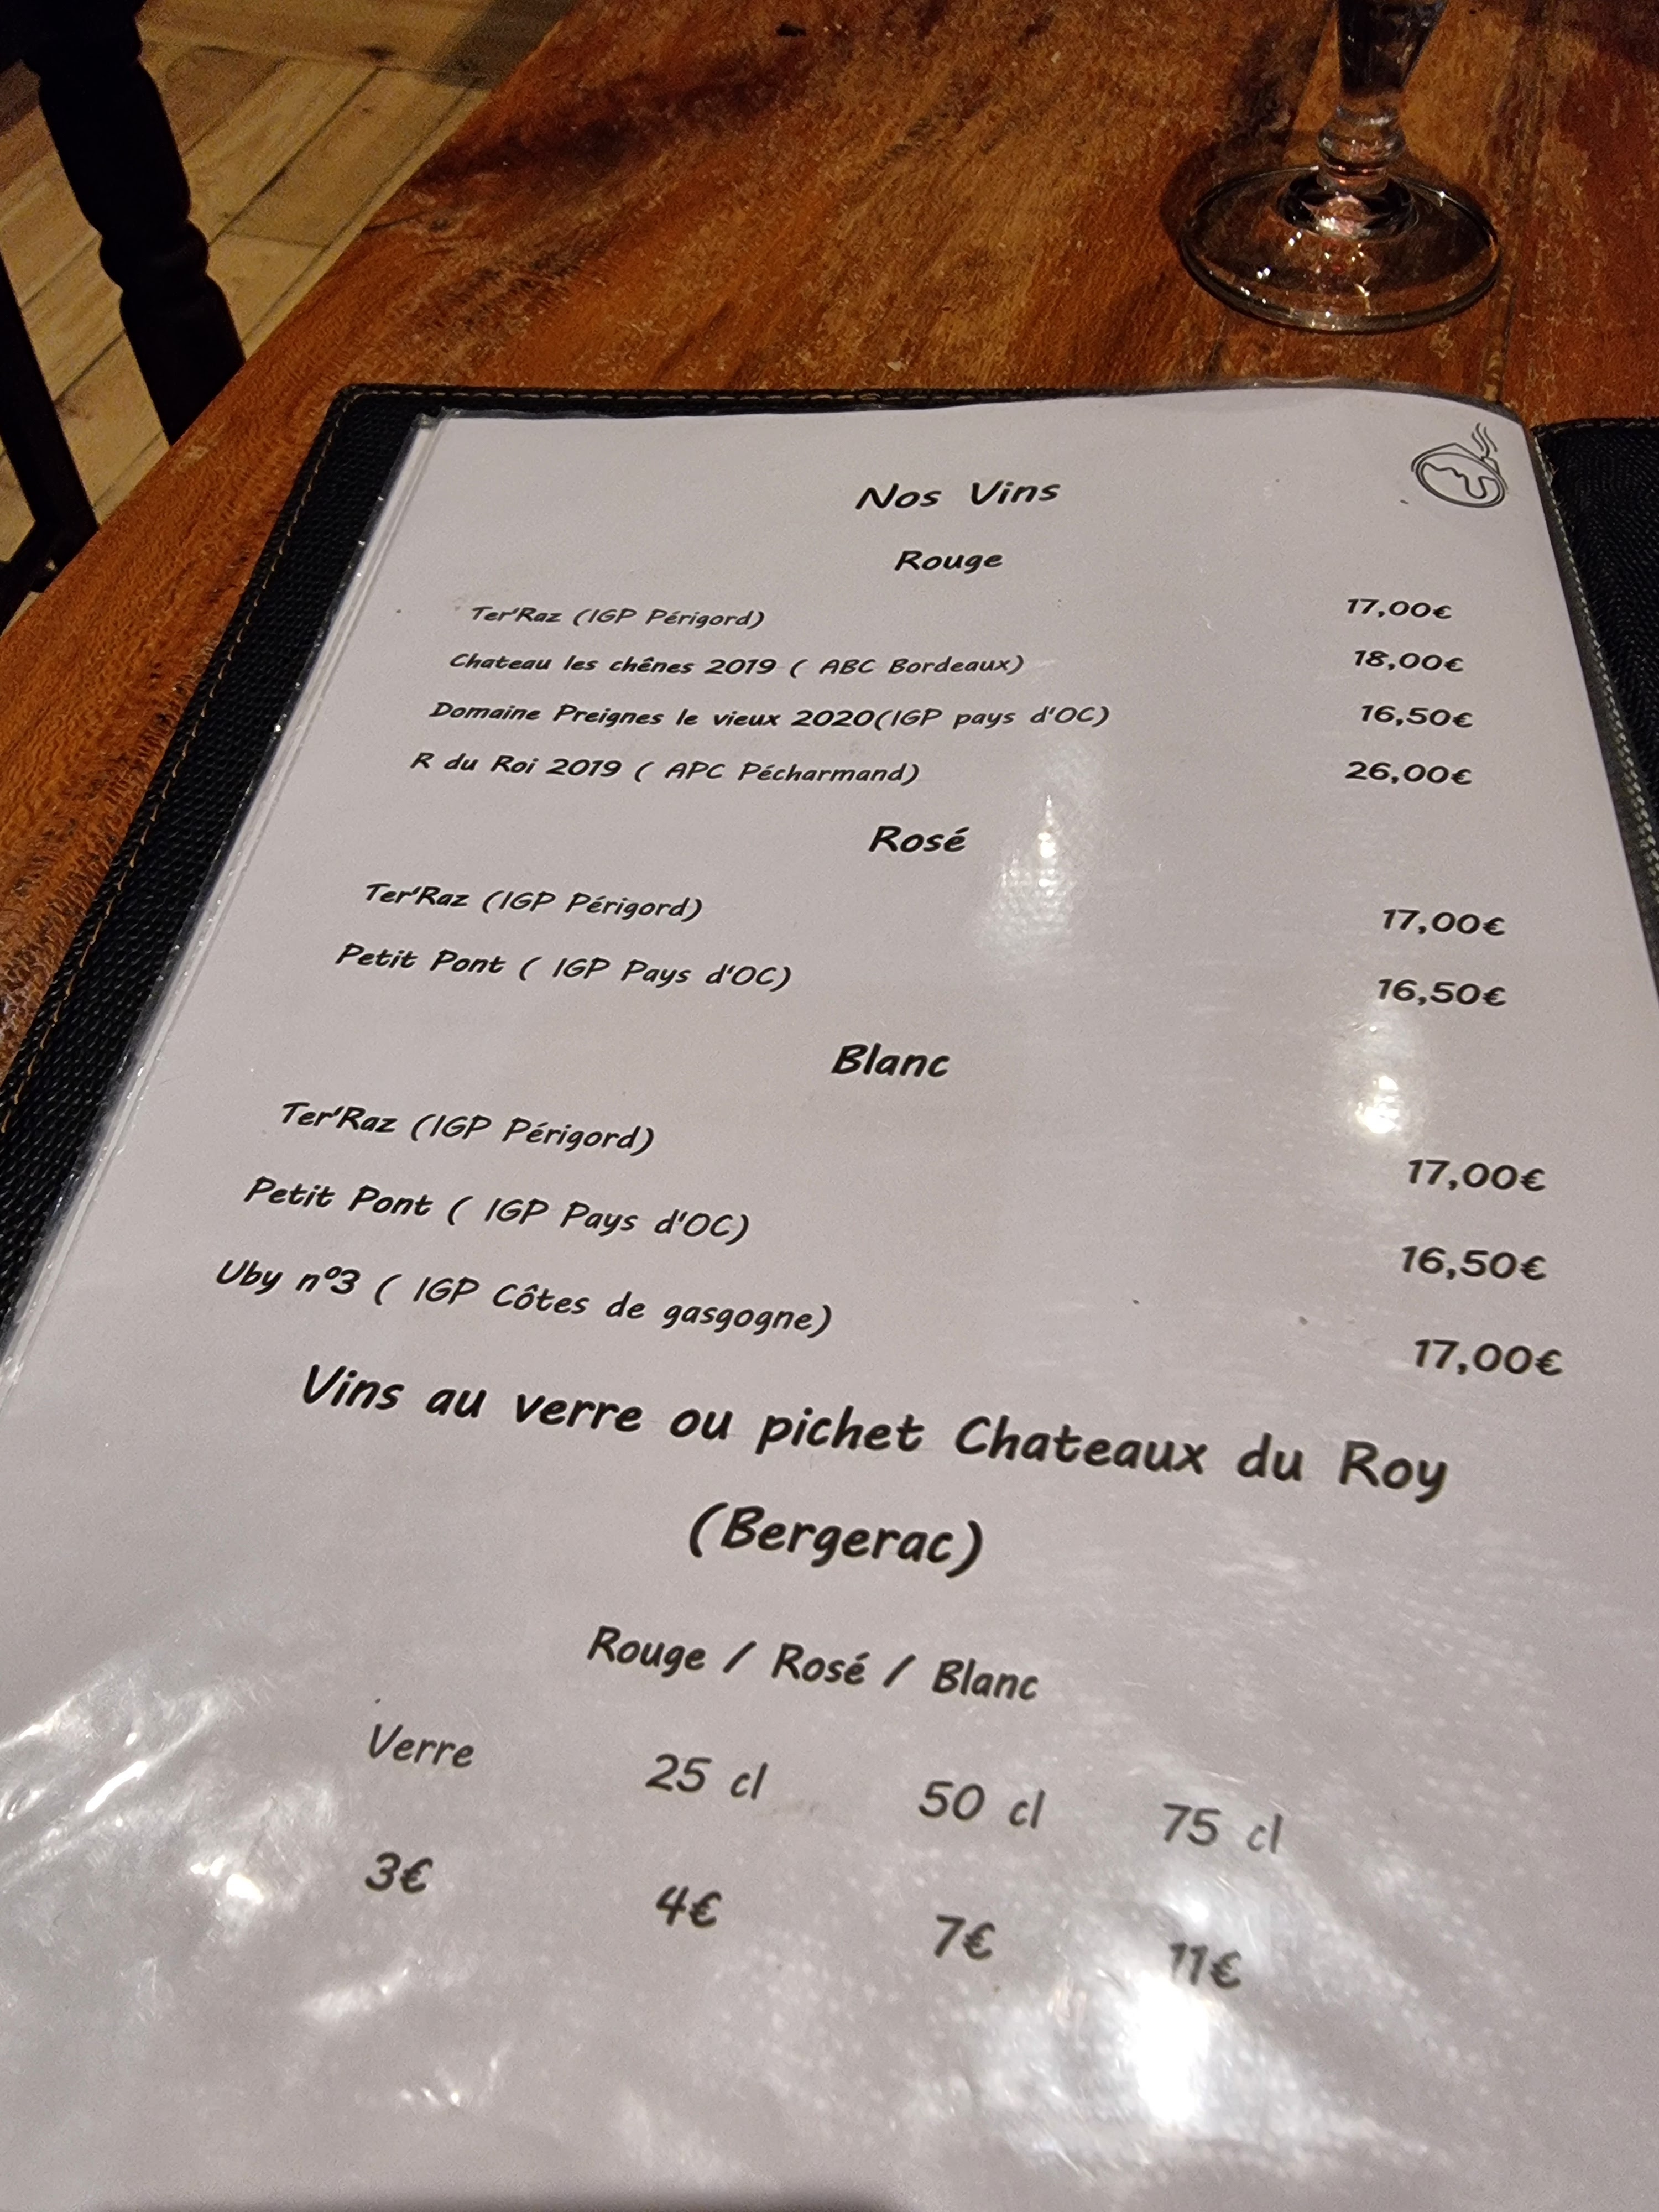 Nos Vins
Rouge
Ter'Raz (IGP Périgord) 17,00€
Chateau les chênes 2019 ( ABC Bordeaux) 18,00€
Domaine Preignes le vieux 2020(IGP pays d'OC) 16,50€
R du Roi 2019 ( APC Pécharmand) 26,00€
Rosé
Ter'Raz (IGP Périgord) 17,00€
Petit Pont ( IGP Pays d'OC) 16,50€
Blanc
Ter'Raz (IGP Périgord) 17,00€
Petit Pont ( IGP Pays d'OC) 16,50€
Uby n°3 ( IGP Côtes de gasgogne) 17,00€
Vins au verre ou pichet Chateaux du Roy
(Bergerac)
Rouge / Rosé / Blanc
Verre 25 cl 50 cl 75 cl
3€ 4€ 7€ 11€